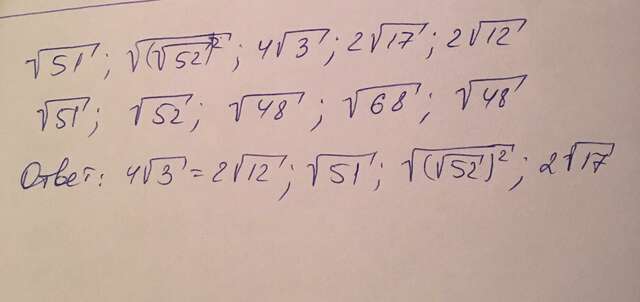 √51; √(√52)²; 4√3; 2√17; 2√12
√51; √52; √48; √68; √48
Ответ: 4√3 = 2√12; √51; √(√52)²; 2√17